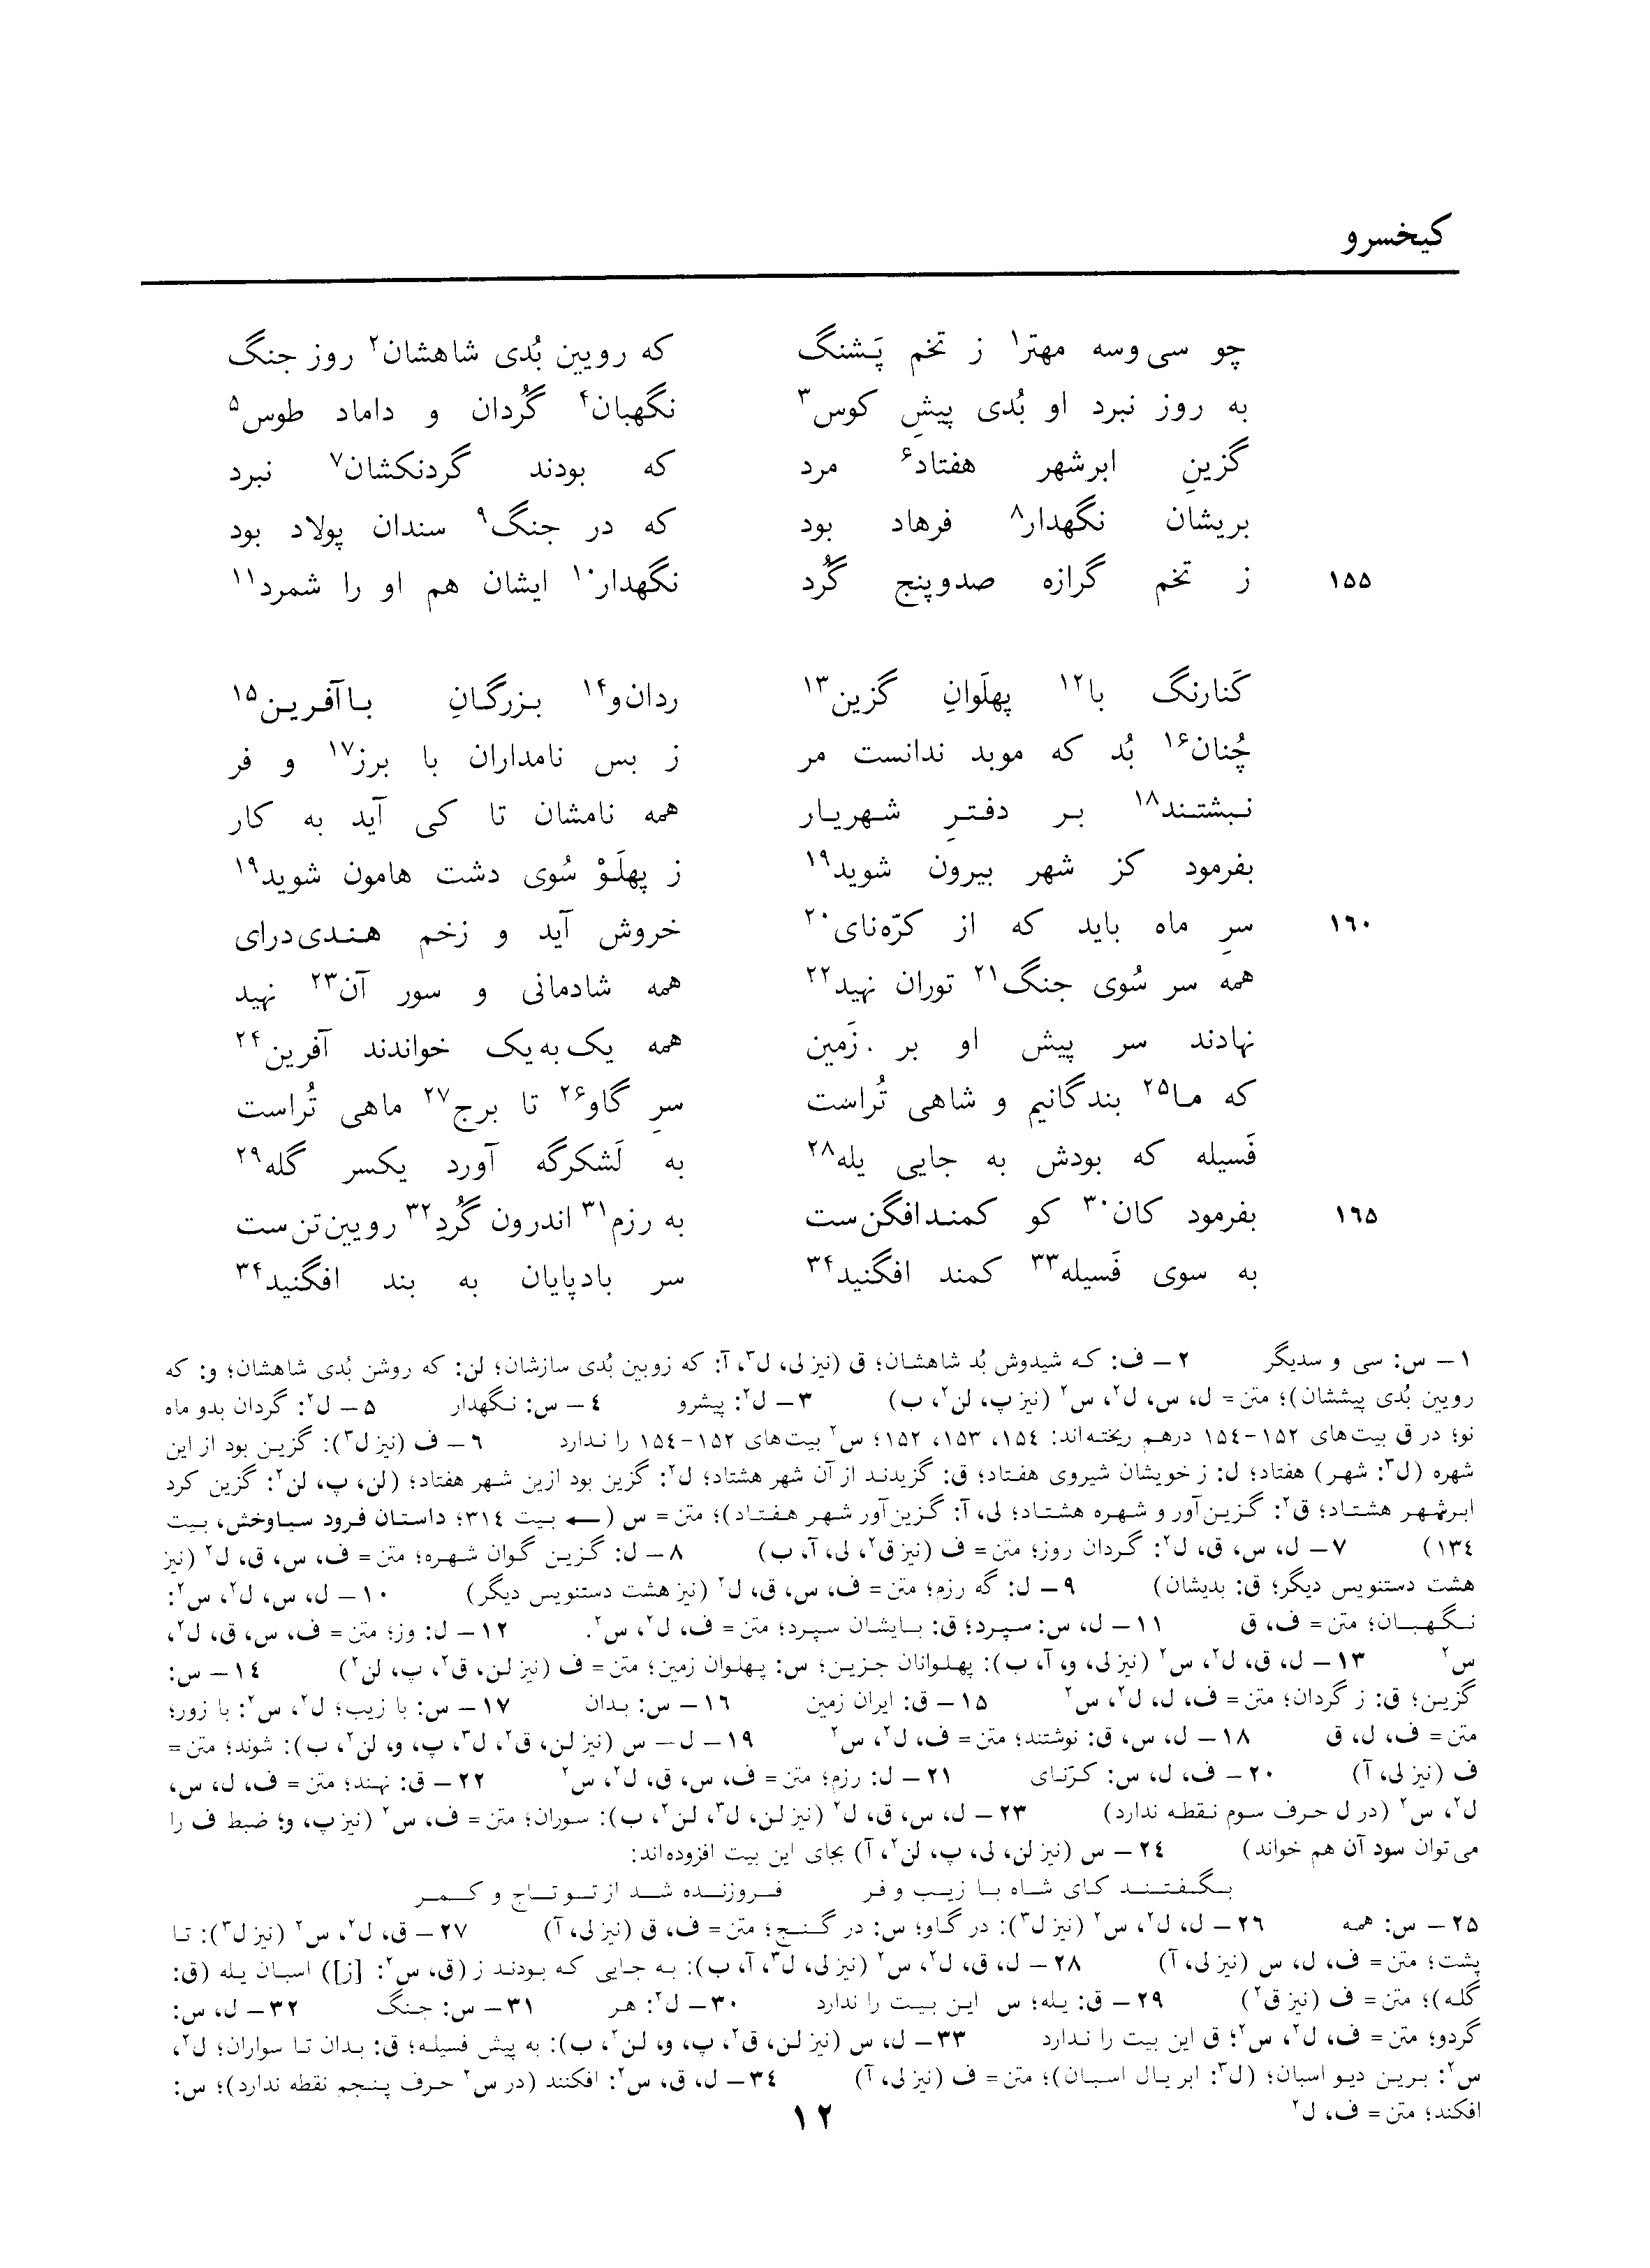 کیخسرو
چو سی‌وسه مهتر۱ ز تخم پَشنگ که رویین بُدی شاهشان۲ روز جنگ
به روز نبرد او بُدی پیشِ کوس۳ نگهبان۴ گُردان و داماد طوس۵
گزینِ ابرشهر هفتاد۶ مرد که بودند گردنکشان۷ نبرد
بریشان نگهدار۸ فرهاد بود که در جنگ۹ سندان پولاد بود
۱۵۵ ز تخم گرازه صدوپنج گُرد نگهدار۱۰ ایشان هم او را شمرد۱۱
کَنارنگ با۱۲ پهلَوانِ گزین۱۳ ردان‌و۱۴ بزرگانِ باآفرین۱۵
چُنان۱۶ بُد که موبد ندانست مر ز بس نامداران با برز۱۷ و فر
نبشتند۱۸ بر دفترِ شهریار همه نامشان تا کی آید به کار
بفرمود کز شهر بیرون شوید۱۹ ز پهلَوْ سُوی دشت هامون شوید۱۹
۱۶۰ سرِ ماه باید که از کرّه‌نای۲۰ خروش آید و زخم هندی‌درای
همه سر سُوی جنگ۲۱ توران نهید۲۲ همه شادمانی و سور آن۲۳ نهید
نهادند سر پیش او بر زَمین همه یک‌به‌یک خواندند آفرین۲۴
که ما۲۵ بندگانیم و شاهی تُراست سرِ گاو۲۶ تا برج۲۷ ماهی تُراست
فَسیله که بودش به جایی یله۲۸ به لَشکرگه آورد یکسر گله۲۹
۱۶۵ بفرمود کان۳۰ کو کمندافگن‌ست به رزم۳۱ اندرون گُردِ۳۲ رویین‌تن‌ست
به سوی فَسیله۳۳ کمند افگنید۳۴ سر بادپایان به بند افگنید۳۴
۱ – س: سی و سدیگر ۲ – ف: که شیدوش بُد شاهشان؛ ق (نیز لی، ل۳، آ: که زوبین بُدی سازشان؛ لن: که روشن بُدی شاهشان؛ و: که
رویین بُدی پیششان)؛ متن = ل، س، ل۲، س۲ (نیز پ، لن۲، ب) ۳ – ل۲: پیشرو ۴ – س: نگهدار ۵ – ل۲: گردان بدو ماه
نو؛ در ق بیت‌های ۱۵۲-۱۵۴ درهم ریخته‌اند: ۱۵۴، ۱۵۳، ۱۵۲؛ س۲ بیت‌های ۱۵۲-۱۵۴ را ندارد ۶ – ف (نیز ل۳): گزین بود از این
شهره (ل۳: شهر) هفتاد؛ ل: ز خویشان شیروی هفتاد؛ ق: گزیدند از آن شهر هشتاد؛ ل۲: گزین بود ازین شهر هفتاد؛ (لن، پ، لن۲: گزین کرد
ابرشهر هشتاد؛ ق۲: گزین‌آور و شهره هشتاد؛ لی، آ: گزین‌آور شهر هفتاد)؛ متن = س (← بیت ۳۱۴؛ داستان فرود سیاوخش، بیت
۱۳۴) ۷ – ل، س، ق، ل۲: گردان روز؛ متن = ف (نیز ق۲، لی، آ، ب) ۸ – ل: گزین گوان شهره؛ متن = ف، س، ق، ل۲ (نیز
هشت دستنویس دیگر؛ ق: بدیشان) ۹ – ل: گه رزم؛ متن = ف، س، ق، ل۲ (نیز هشت دستنویس دیگر) ۱۰ – ل، س، ل۲، س۲:
نگهبان؛ متن = ف، ق ۱۱ – ل، س: سپرد؛ ق: بایشان سپرد؛ متن = ف، ل۲، س۲. ۱۲ – ل: وز؛ متن = ف، س، ق، ل۲،
س۲ ۱۳ – ل، ق، ل۲، س۲ (نیز لی، و، آ، ب): پهلوانان جزین؛ س: پهلوان زمین؛ متن = ف (نیز لن، ق۲، پ، لن۲) ۱۴ – س:
گزین؛ ق: ز گردان؛ متن = ف، ل، ل۲، س۲ ۱۵ – ق: ایران زمین ۱۶ – س: بدان ۱۷ – س: با زیب؛ ل۲، س۲: با زور؛
متن = ف، ل، ق ۱۸ – ل، س، ق: نوشتند؛ متن = ف، ل۲، س۲ ۱۹ – ل – س (نیز لن، ق۲، ل۳، پ، و، لن۲، ب): شوند؛ متن =
ف (نیز لی، آ) ۲۰ – ف، ل، س: کرّنای ۲۱ – ل: رزم؛ متن = ف، س، ق، ل۲، س۲ ۲۲ – ق: نهند؛ متن = ف، ل، س،
ل۲، س۲ (در ل حرف سوم نقطه ندارد) ۲۳ – ل، س، ق، ل۲ (نیز لن، ل۳، لن۲، ب): سوران؛ متن = ف، س۲ (نیز پ، و؛ ضبط ف را
می‌توان سود آن هم خواند) ۲۴ – س (نیز لن، لی، پ، لن۲، آ) بجای این بیت افزوده‌اند:
بگفتند کای شاه با زیب و فر فروزنده شد از تو تاج و کمر
۲۵ – س: همه ۲۶ – ل، ل۲، س۲ (نیز ل۳): در گاو؛ س: در گنج؛ متن = ف، ق (نیز لی، آ) ۲۷ – ق، ل۲، س۲ (نیز ل۳): تا
پشت؛ متن = ف، ل، س (نیز لی، آ) ۲۸ – ل، ق، ل۲، س۲ (نیز لی، ل۳، آ، ب): به جایی که بودند ز (ق، س۲: [ز]) اسبان یله (ق:
گله)؛ متن = ف (نیز ق۲) ۲۹ – ق: یله؛ س این بیت را ندارد ۳۰ – ل۲: هر ۳۱ – س: جنگ ۳۲ – ل، س:
گردو؛ متن = ف، ل۲، س۲؛ ق این بیت را ندارد ۳۳ – ل، س (نیز لن، ق۲، پ، و، لن۲، ب): به پیش فسیله؛ ق: بدان تا سواران؛ ل۲،
س۲: برین دیو اسبان؛ (ل۳: ابر یال اسبان)؛ متن = ف (نیز لی، آ) ۳۴ – ل، ق، س۲: افکنند (در س۲ حرف پنجم نقطه ندارد)؛ س:
افکند؛ متن = ف، ل۲
۱۲